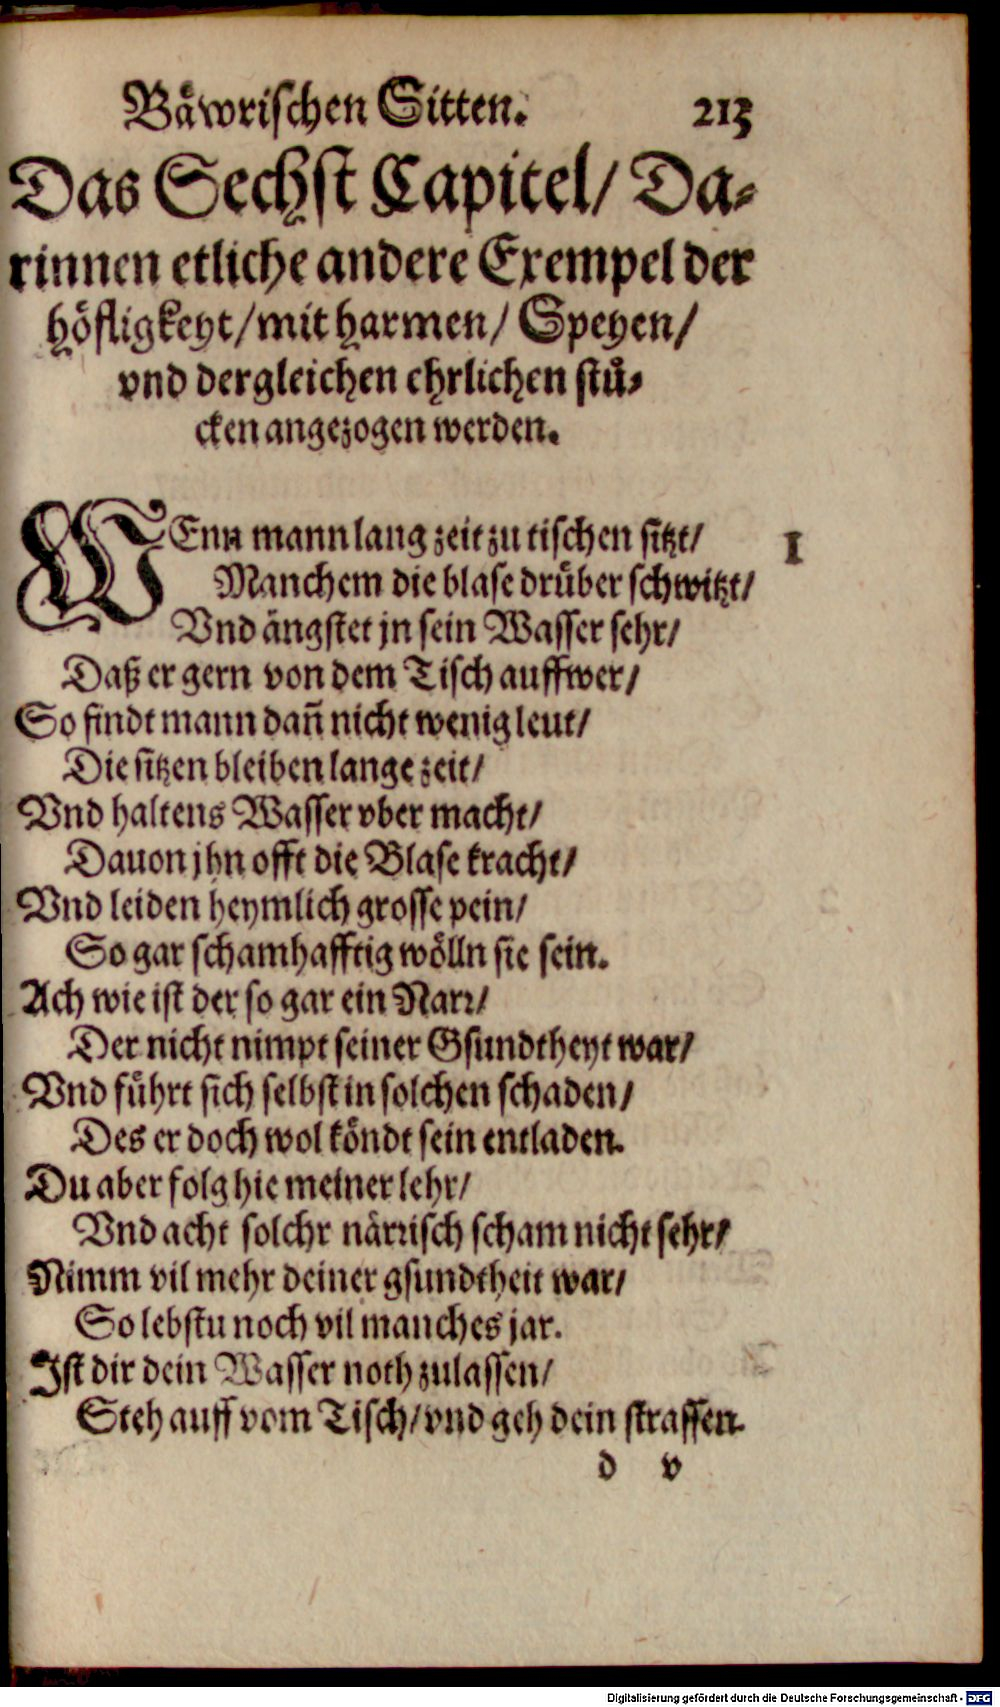 Bäwrischen Sitten. 213
Das Sechst Capitel/ Da-
rinnen etliche andere Exempel der
höfligkeyt/ mit harmen/ Speyen/
vnd dergleichen ehrlichen stů-
cken angezogen werden.
WEnn mann lang zeit zu tischen sitzt/ 1
Manchem die blase drüber schwitzt/
Vnd ängstet jn sein Wasser sehr/
Daß er gern von dem Tisch auff wer/
So findt mann dañ nicht wenig leut/
Die sitzen bleiben lange zeit/
Vnd haltens Wasser vber macht/
Dauon jhn offt die Blase kracht/
Vnd leiden heymlich grosse pein/
So gar schamhafftig wölln sie sein.
Ach wie ist der so gar ein Narr/
Der nicht nimpt seiner Gsundtheyt war/
Vnd führt sich selbst in solchen schaden/
Des er doch wol köndt sein entladen.
Du aber folg hie meiner lehr/
Vnd acht solchr närrisch scham nicht sehr/
Nimm vil mehr deiner gsundtheit war/
So lebstu noch vil manches jar.
Ist dir dein Wasser noth zulassen/
Steh auff vom Tisch/ vnd geh dein strassen.
d v
Digitalisierung gefördert durch die Deutsche Forschungsgemeinschaft - DFG